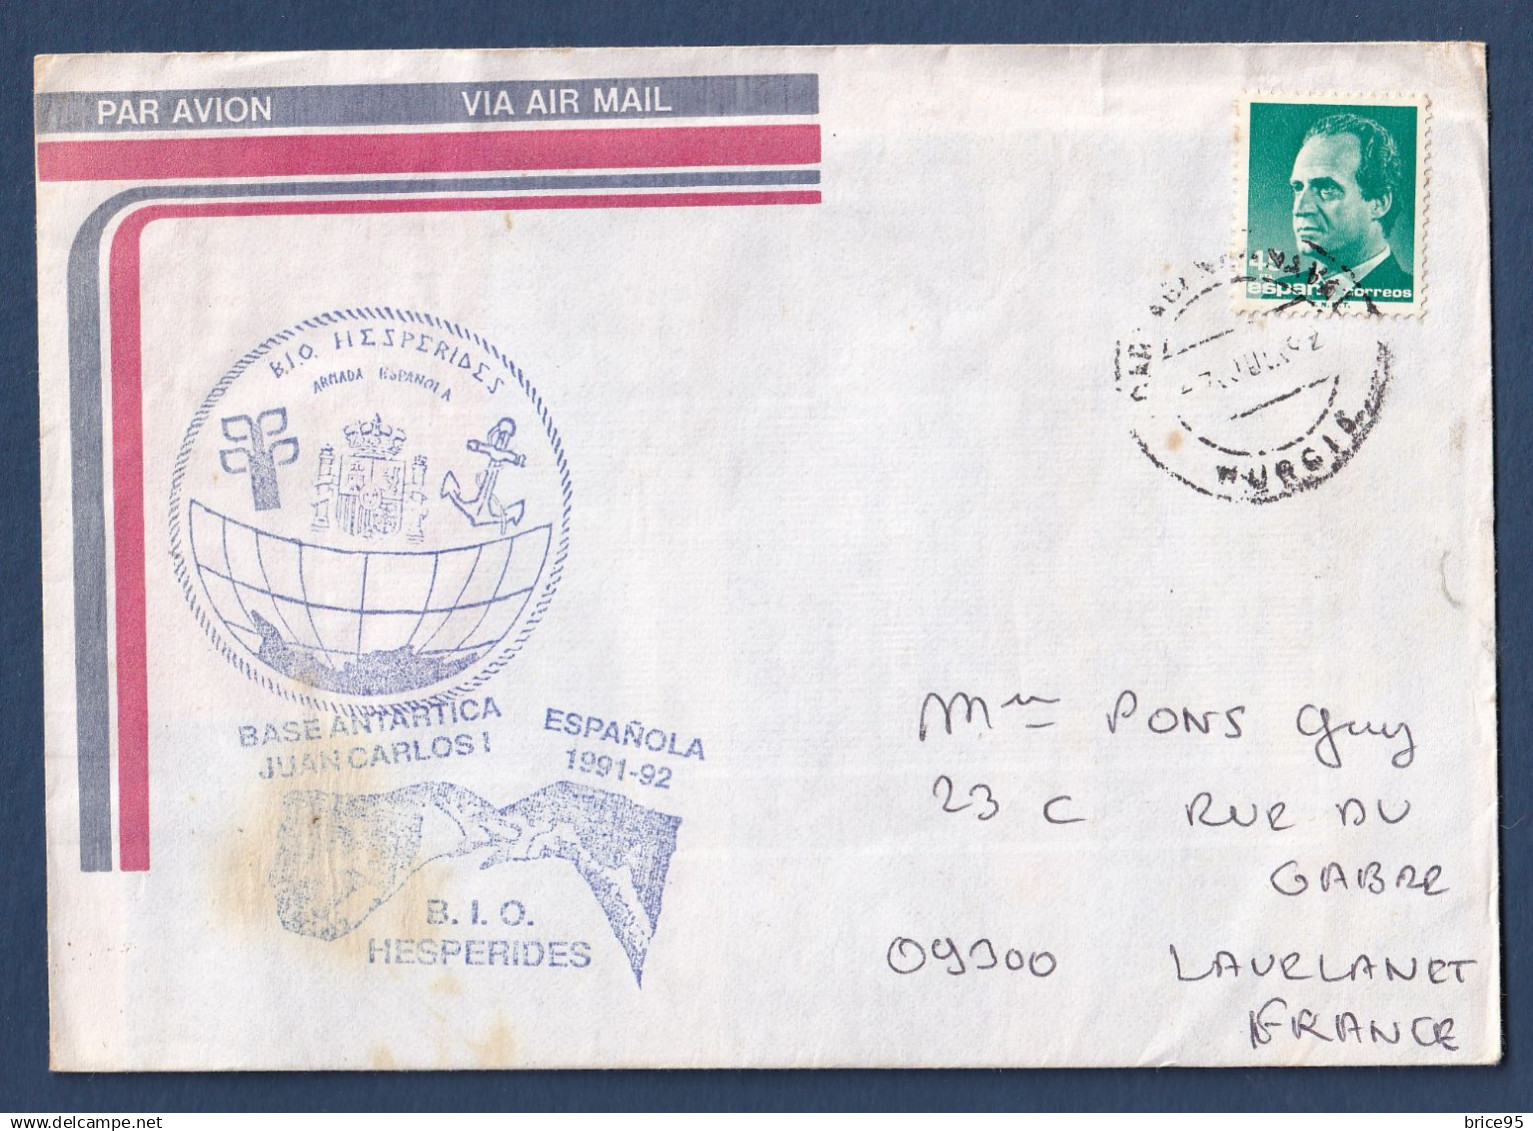 PAR AVION
VIA AIR MAIL
45
españa correos
JUL 92
MURCIA
B.I.O. HESPERIDES
ARMADA ESPAÑOLA
BASE ANTARTICA ESPAÑOLA
JUAN CARLOS I 1991-92
B. I. O.
HESPERIDES
PONS Guy
23 C RUE DU
GABRE
09300 LAVELANET
FRANCE
delcampe.net
brice95